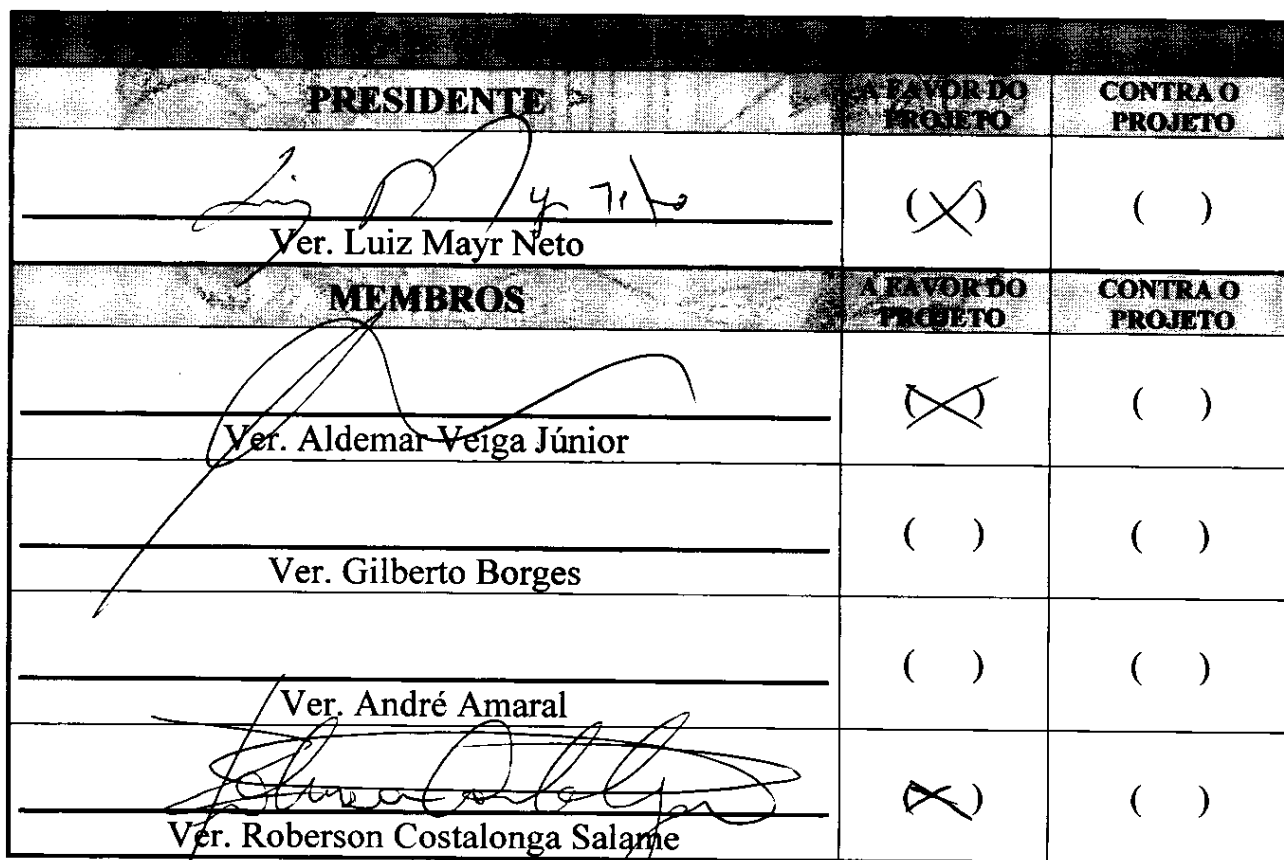 PRESIDENTE
A FAVOR DO PROJETO
CONTRA O PROJETO
(X) ( )
Ver. Luiz Mayr Neto
MEMBROS
A FAVOR DO PROJETO
CONTRA O PROJETO
(X) ( )
Ver. Aldemar Veiga Júnior
( ) ( )
Ver. Gilberto Borges
( ) ( )
Ver. André Amaral
(X) ( )
Ver. Roberson Costalonga Salame